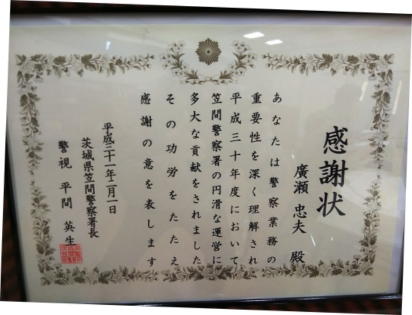 感謝状
廣瀬 忠夫 殿
あなたは警察業務の
重要性を深く理解され
平成三十年度において
笠間警察署の円滑な運営に
多大な貢献をされました
その功労をたたえ
感謝の意を表します
平成三十一年二月一日
茨城県笠間警察署長
警視 平間 英生